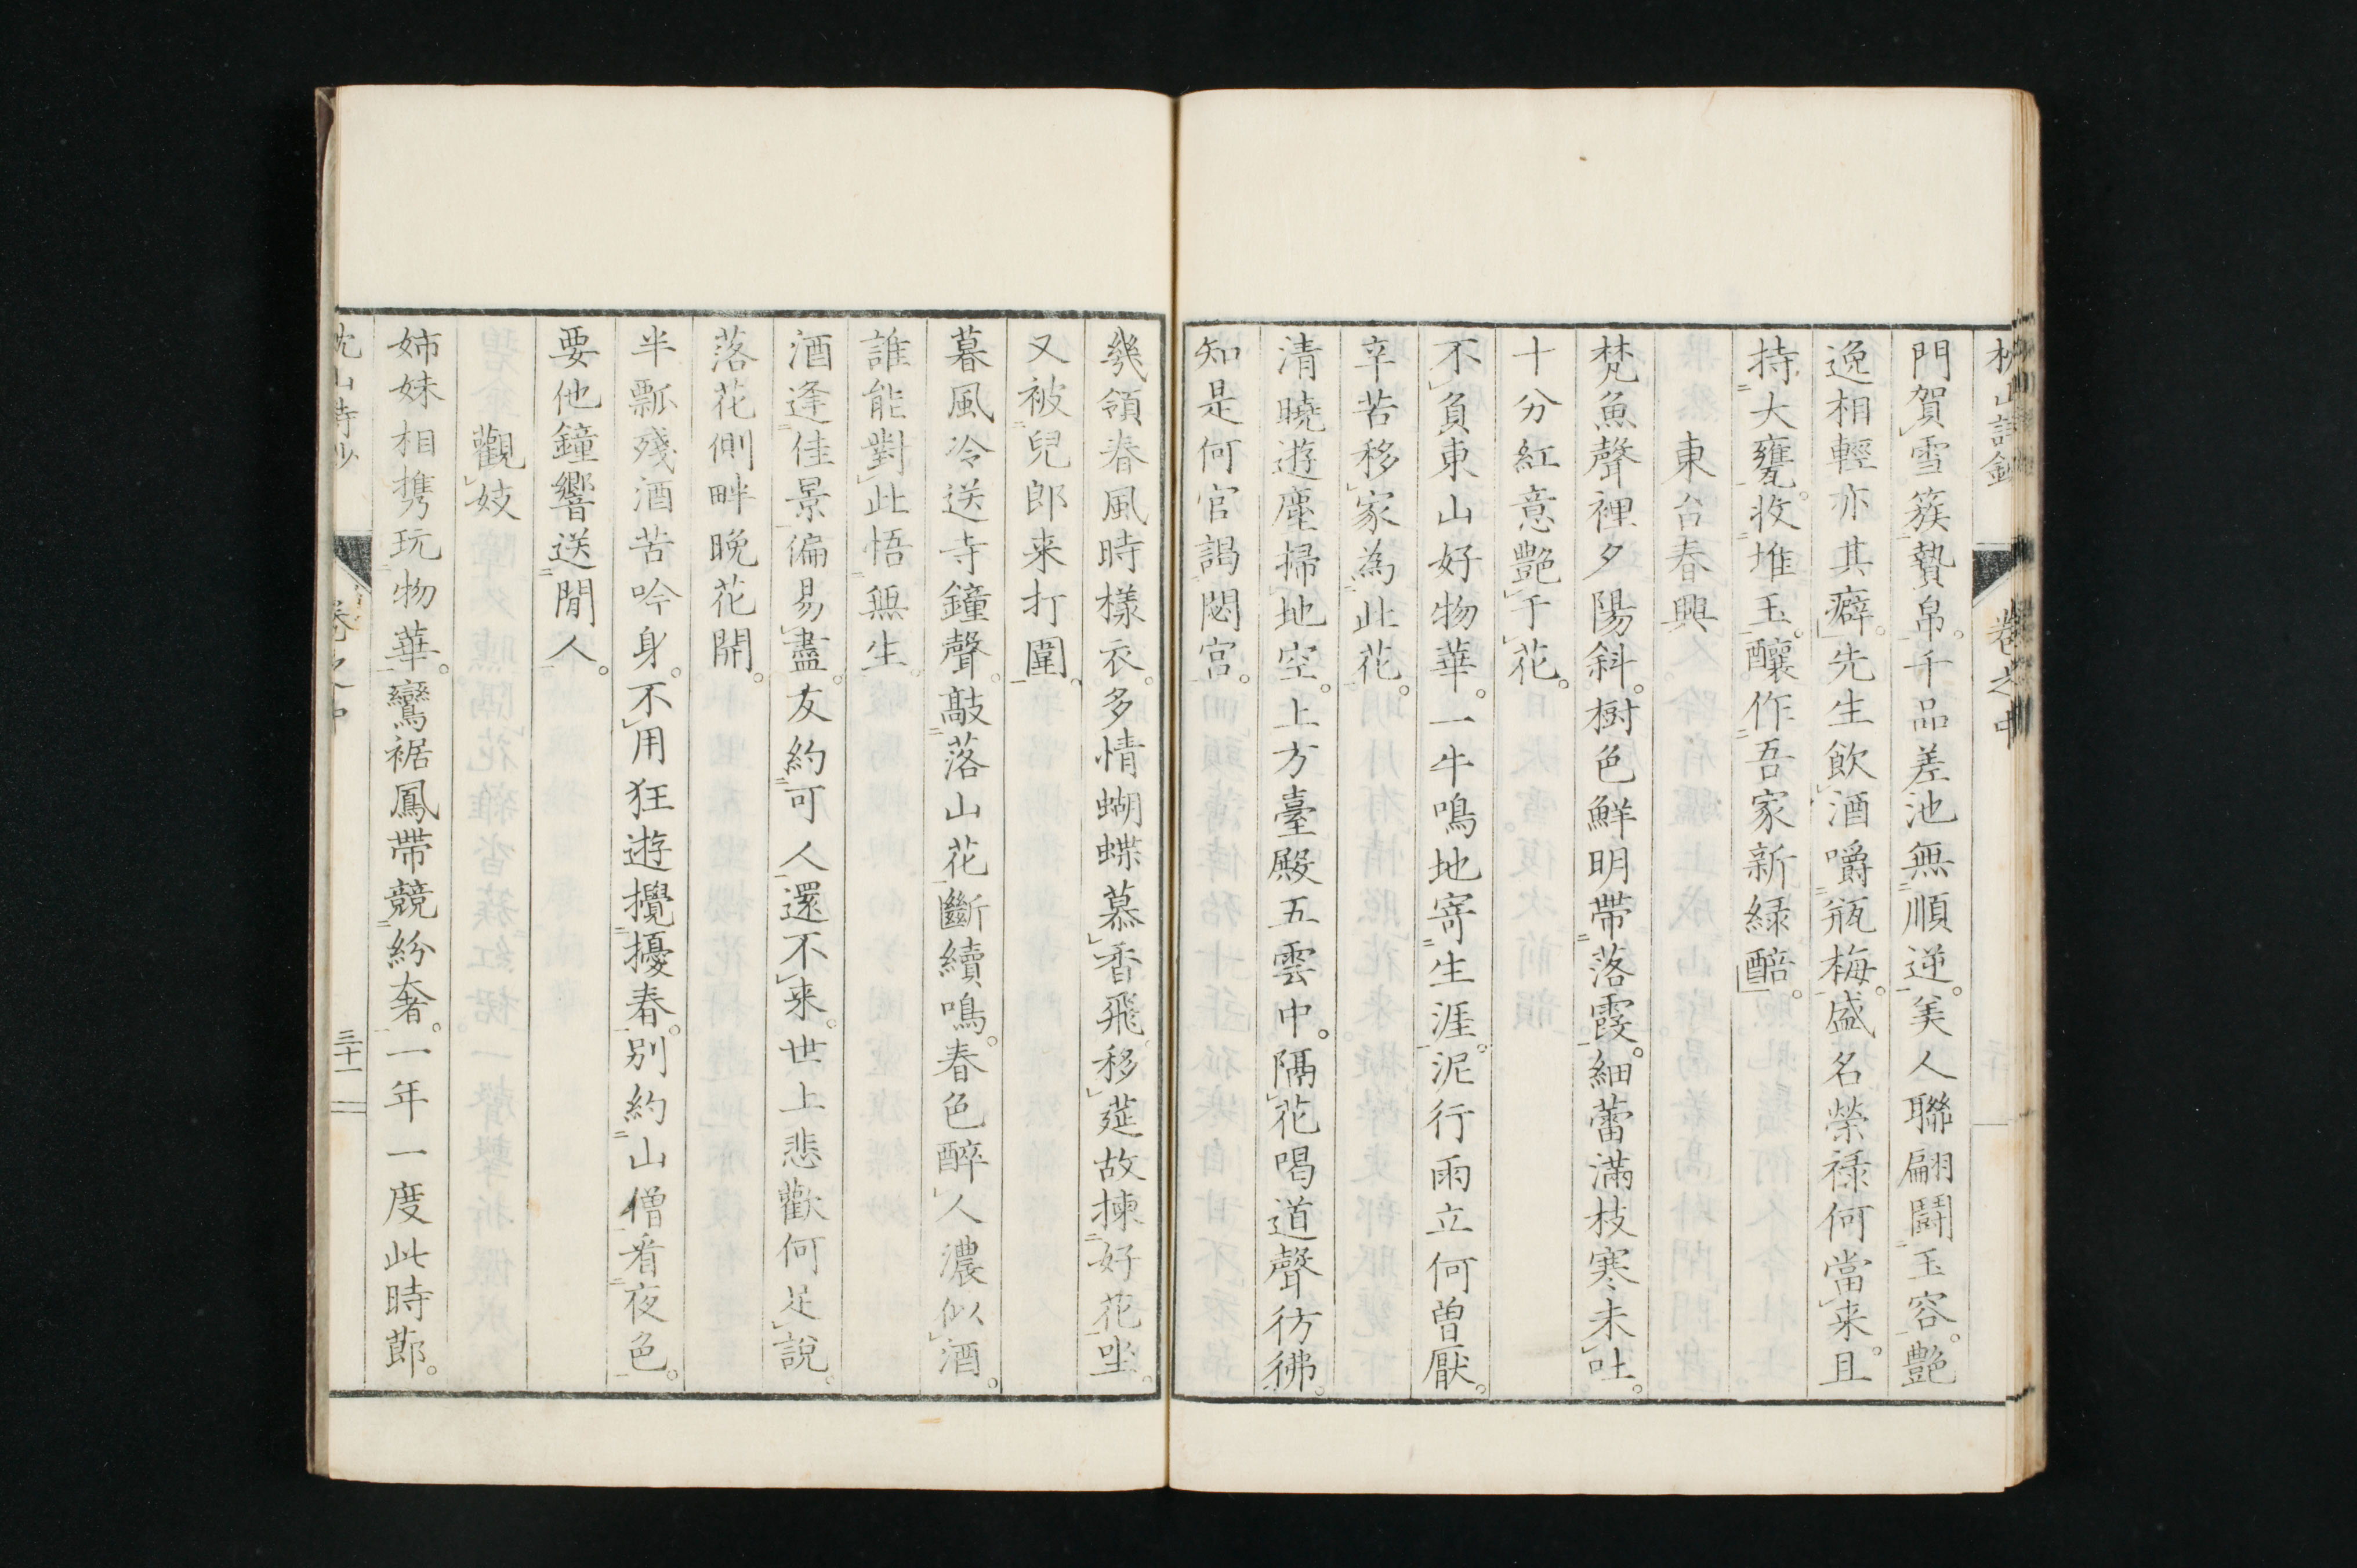 枕山詩鈔 卷之中
門賀雪簇贄帛。千品差池無順逆。美人聯翩鬪玉容。艷
逸相輕亦其癖。先生飲酒嚼瓶梅。盛名榮祿何當来。且
持大甕。收堆玉。釀作吾家新緑醅。
東台春興
梵魚聲裡夕陽斜。樹色鮮明帶落霞。細蕾滿枝寒未吐。
十分紅意艷于花。
不負東山好物華。一牛鳴地寄生涯。泥行雨立何曽厭。
辛苦移家為此花。
清曉遊塵掃地空。上方臺殿五雲中。隔花喝道聲彷彿。
知是何官謁閟宮。
幾領春風時樣衣。多情蝴蝶慕香飛。移莚故揀好花坐。
又被兒郎来打圍。
暮風冷送寺鐘聲。敲落山花斷續鳴。春色醉人濃似酒。
誰能對此悟無生。
酒逢佳景偏易盡。友約可人還不来。世上悲歡何足說。
落花側畔晚花開。
半瓢殘酒苦吟身。不用狂遊攪擾春。別約山僧看夜色。
要他鐘響送閒人。
觀妓
姉妹相携玩物華。鸞裾鳳帶競紛奢。一年一度此時莭。
枕山詩鈔 卷之中 三十一